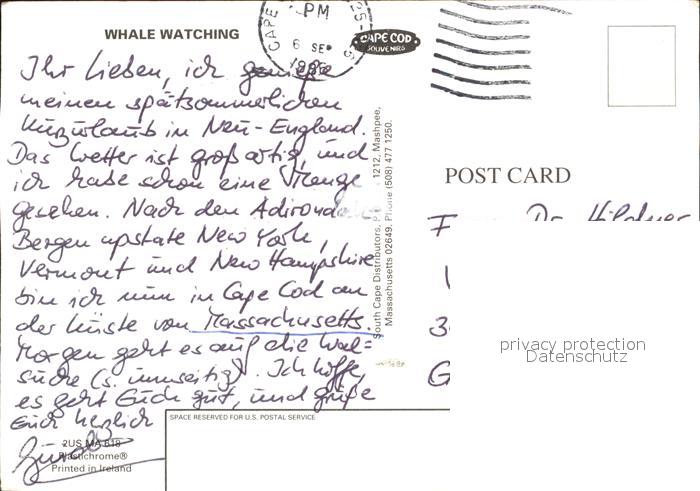 WHALE WATCHING
CAPE
PM
6 SEP
CAPE COD
SOUVENIRS
Ihr Lieben, ich genieße
meinen spätsommerlichen
Kurzurlaub in Neu-England.
Das Wetter ist großartig, und
ich habe schon eine Menge
gesehen. Nach den Adirondack
Bergen upstate New York,
Vermont und New Hampshire
bin ich nun in Cape Cod an
der Küste von Massachusetts.
Morgen geht es auf die Wal=
suche (s. umseitig). Ich hoffe,
es geht Euch gut, und grüße
Euch herzlich
2US MA 618
Plastichrome®
Printed in Ireland
South Cape Distributors, P. 1212, Mashpee,
Massachusetts 02649. Phone (508) 477 1250.
POST CARD
Dr. Hildner
3
G
privacy protection
Datenschutz
SPACE RESERVED FOR U.S. POSTAL SERVICE